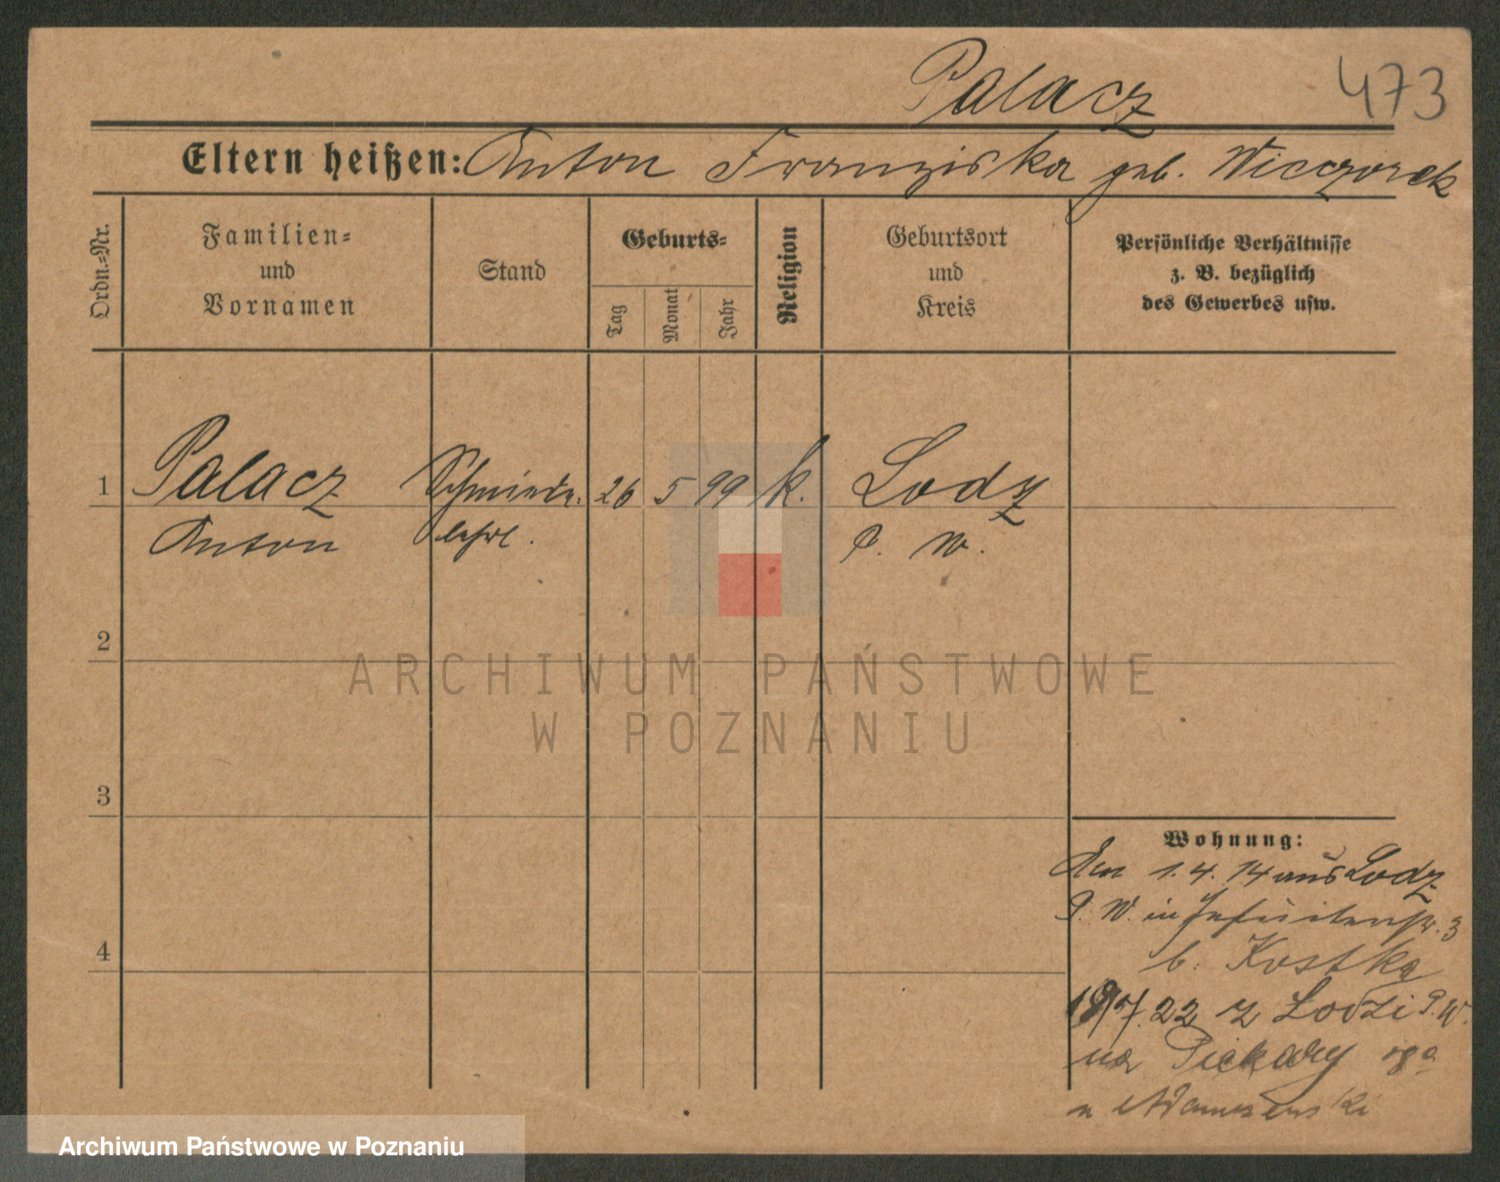 Palacz 473
Eltern heißen: Anton Franziska geb. Wieczorek
Ordn.=Nr.
Familien=
und
Vornamen
Stand
Geburts=
Tag
Monat
Jahr
Religion
Geburtsort
und
Kreis
Persönliche Verhältnisse
z. B. bezüglich
des Gewerbes usw.
1 Palacz Schmiede. 26 5 99 k. Lodz
Anton lehrl. P. W.
2
3
4
ARCHIWUM PAŃSTWOWE
W POZNANIU
Wohnung:
Den 1. 4. 14 aus Lodz
P. W. in Jesuitenstr. 3
b. Kostka
7.22 z Lodzi P. W.
na Piekary
u Adamczewski
Archiwum Państwowe w Poznaniu